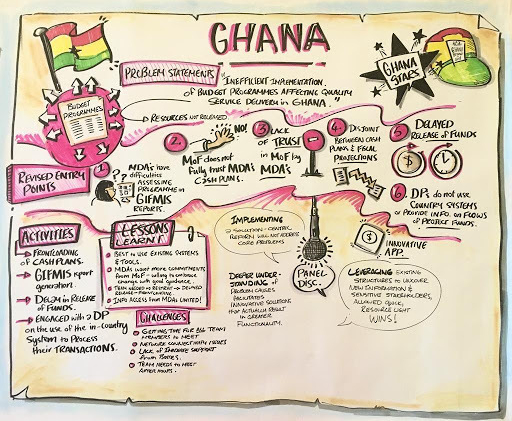 GHANA
PROBLEM STATEMENTS
"INEFFICIENT IMPLEMENTATION
OF BUDGET PROGRAMMES AFFECTING QUALITY
SERVICE DELIVERY IN GHANA."
GHANA
STARS
BUDGET
PROGRAMMES
RESOURCES NOT RELEASED
REVISED ENTRY
POINTS
1
MDA's have
difficulties
ASSESSING
PROGRAMME ON
GIFMIS
REPORTS.
2.
NO!
MOF does not
fully trust MDA's
CASH PLANS.
3
LACK
OF
TRUST
IN MOF by
MDA's
4.
DISJOINT
BETWEEN CASH
PLANS & FISCAL
PROJECTIONS
5
DELAYED
RELEASE OF FUNDS
$
6.
DPs do not use
COUNTRY SYSTEMS
OR PROVIDE INFO. ON FLOWS
OF PROJECT FUNDS.
$
INNOVATIVE
APP.
ACTIVITIES
FRONTLOADING
OF CASH PLANS.
GIFMIS report
generation.
DELAY IN RELEASE
OF FUNDS.
ENGAGED WITH A DP
ON THE USE OF THE IN-COUNTRY
System to PROCESS
their TRANSACTIONS.
LESSONS
LEARNT
BEST to USE EXISTING SYSTEMS
& TOOLS.
MDAs WANT MORE COMMITMENTS
FROM MOF - willing to EMBRACE
change with good guidance.
INFO ACCESS FROM MDAs LIMITED!
CHALLENGES
GETTING TIME FOR ALL TEAM
MEMBERS TO MEET
NETWORK CONNECTIVITY ISSUES
LACK OF
SUPPORT
FROM
TEAM NEEDS TO MEET
AFTER HOURS.
IMPLEMENTING
A SOLUTION-CENTRIC
REFORM WILL NOT ADDRESS
CORE PROBLEMS
DEEPER UNDER-
STANDING OF
PROBLEM CAUSES
FACILITATES
INNOVATIVE SOLUTIONS
THAT ACTUALLY RESULT
IN GREATER
FUNCTIONALITY.
PANEL
DISC.
LEVERAGING EXISTING
STRUCTURES TO UNCOVER
NEW INFORMATION &
SENSITIVE STAKEHOLDERS,
ALLOWED QUICK,
RESOURCE LIGHT
WINS!